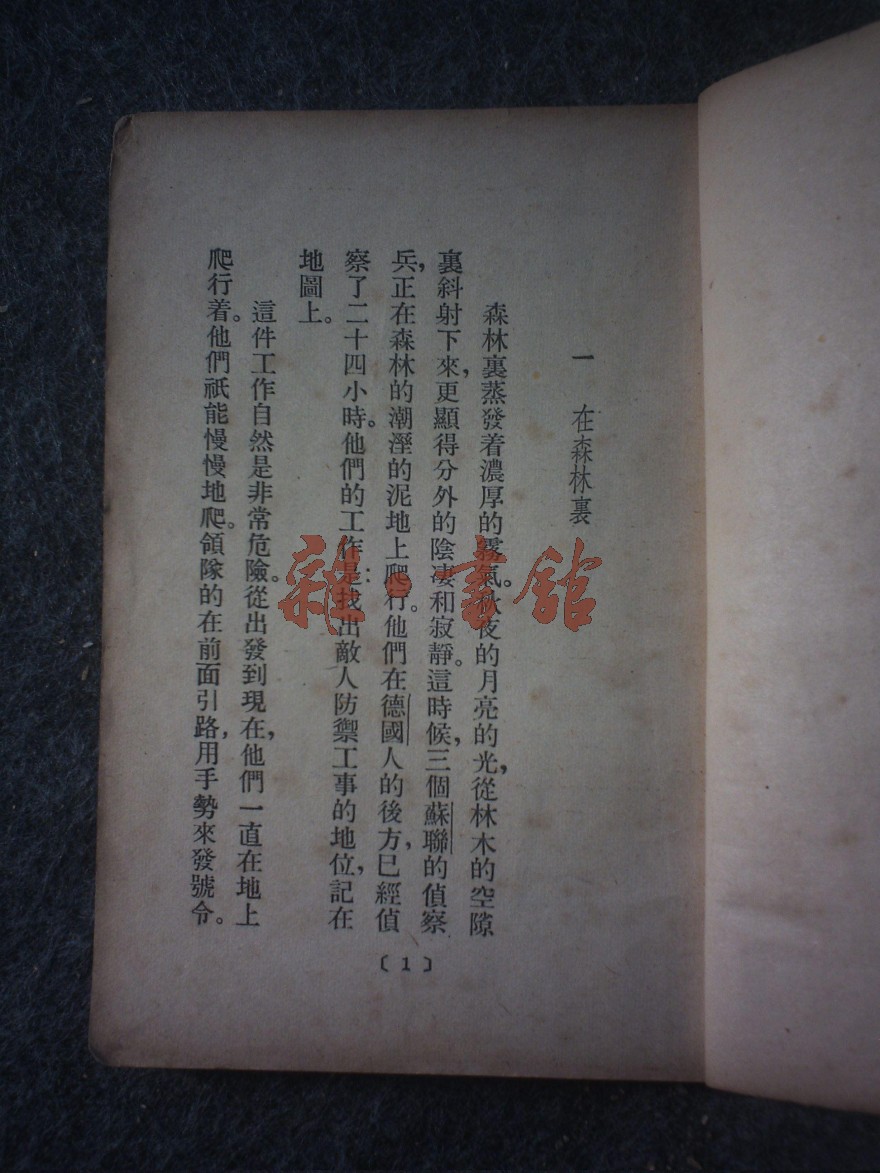 一 在森林裏
森林裏蒸發着濃厚的霧氣。秋夜的月亮的光，從林木的空隙
裏斜射下來，更顯得分外的陰凄和寂靜。這時候，三個蘇聯的偵察
兵，正在森林的潮溼的泥地上爬行。他們在德國人的後方，已經偵
察了二十四小時。他們的工作是：找出敵人防禦工事的地位，記在
地圖上。
這件工作自然是非常危險。從出發到現在，他們一直在地上
爬行着。他們祇能慢慢地爬。領隊的在前面引路，用手勢來發號令。
〔1〕
雜·書館